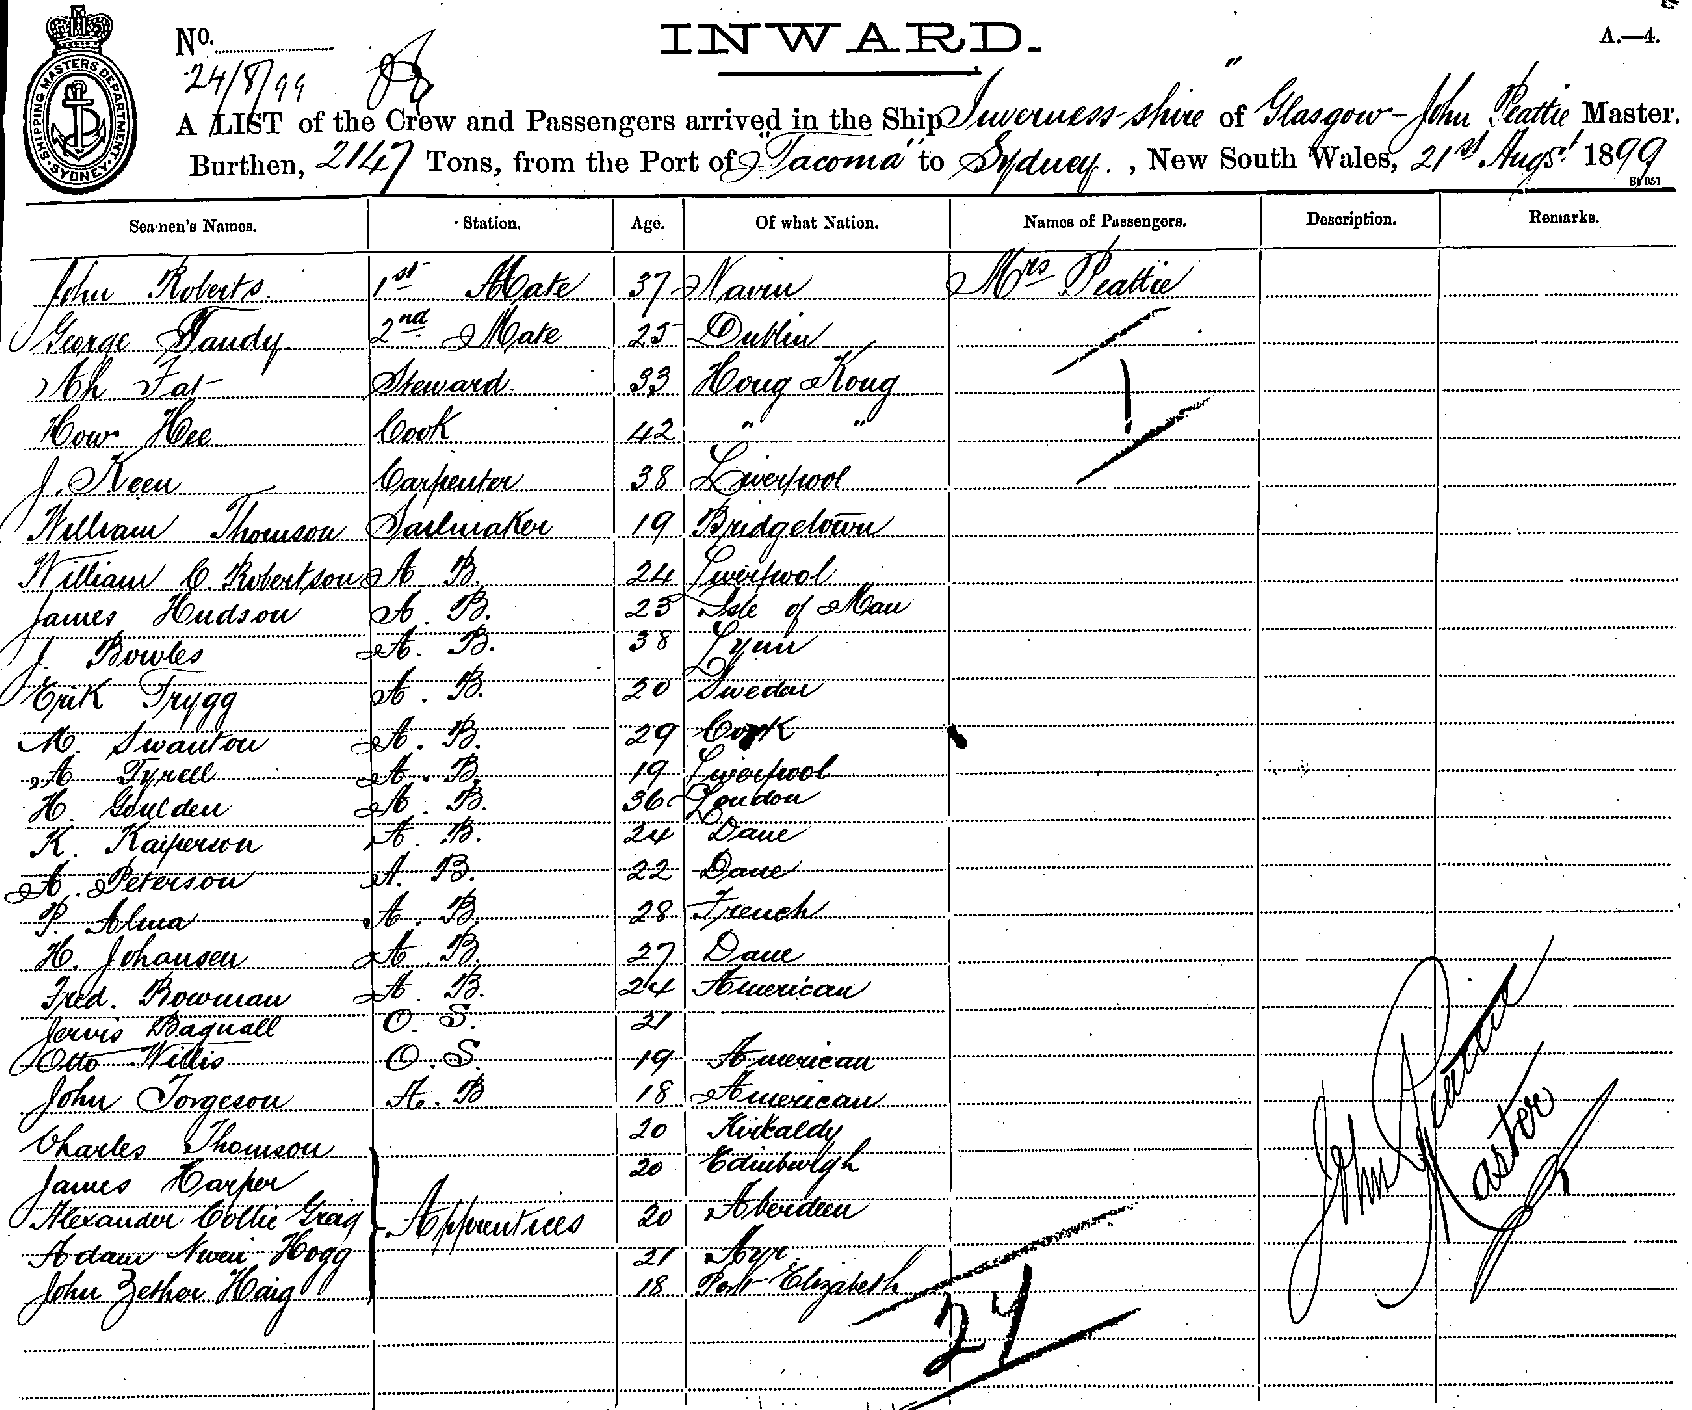 INWARD.
A.—4.
No.
24/8/99
SHIPPING MASTERS DEPARTMENT SYDNEY
A LIST of the Crew and Passengers arrived in the Ship Inverness-shire of Glasgow - John Peattie Master.
Burthen, 2147 Tons, from the Port of "Tacoma" to Sydney. , New South Wales, 21st Augst 1899
Seamen's Names. Station. Age. Of what Nation. Names of Passengers. Description. Remarks.
John Roberts. 1st Mate 37 Mrs Peattie
George Tandy 2nd Mate 25 Dublin
Ah Fat Steward. 33 Hong Kong 1
How Hee Cook 42 " "
J. Keen Carpenter 38 Liverpool
William Thomson Sailmaker 19 Bridgetown
William C. Robertson A. B. 24 Liverpool
James Hudson A. B. 25 Isle of Man
J. Bowles A. B. 38 Lynn
Erik Trygg A. B. 20 Sweden
M. Swanton A. B. 29 Cork
A Tyrell A. B. 19 Liverpool
H. Goulden A. B. 36 London
K. Kaiperson A. B. 24 Dane
A. Peterson A. B. 22 Dane
P. Alma A. B. 28 French
H. Johansen A. B. 27 Dane
Fred. Bowman A. B. 24 American
Jervis Bagnall O. S. 21
Otto Willis O. S. 19 American
John Torgeson A. B 18 American
Charles Thomson 20 Kirkaldy
James Harper 20 Edinburgh
Alexander Collie Greig Apprentices 20 Aberdeen
Adam Hogg 21 Ayr.
John Haig 18 Port Elizabeth
27
John Peattie
Master